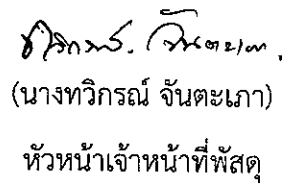 (นางทวิกรณ์ จันตะเภา)
หัวหน้าเจ้าหน้าที่พัสดุ